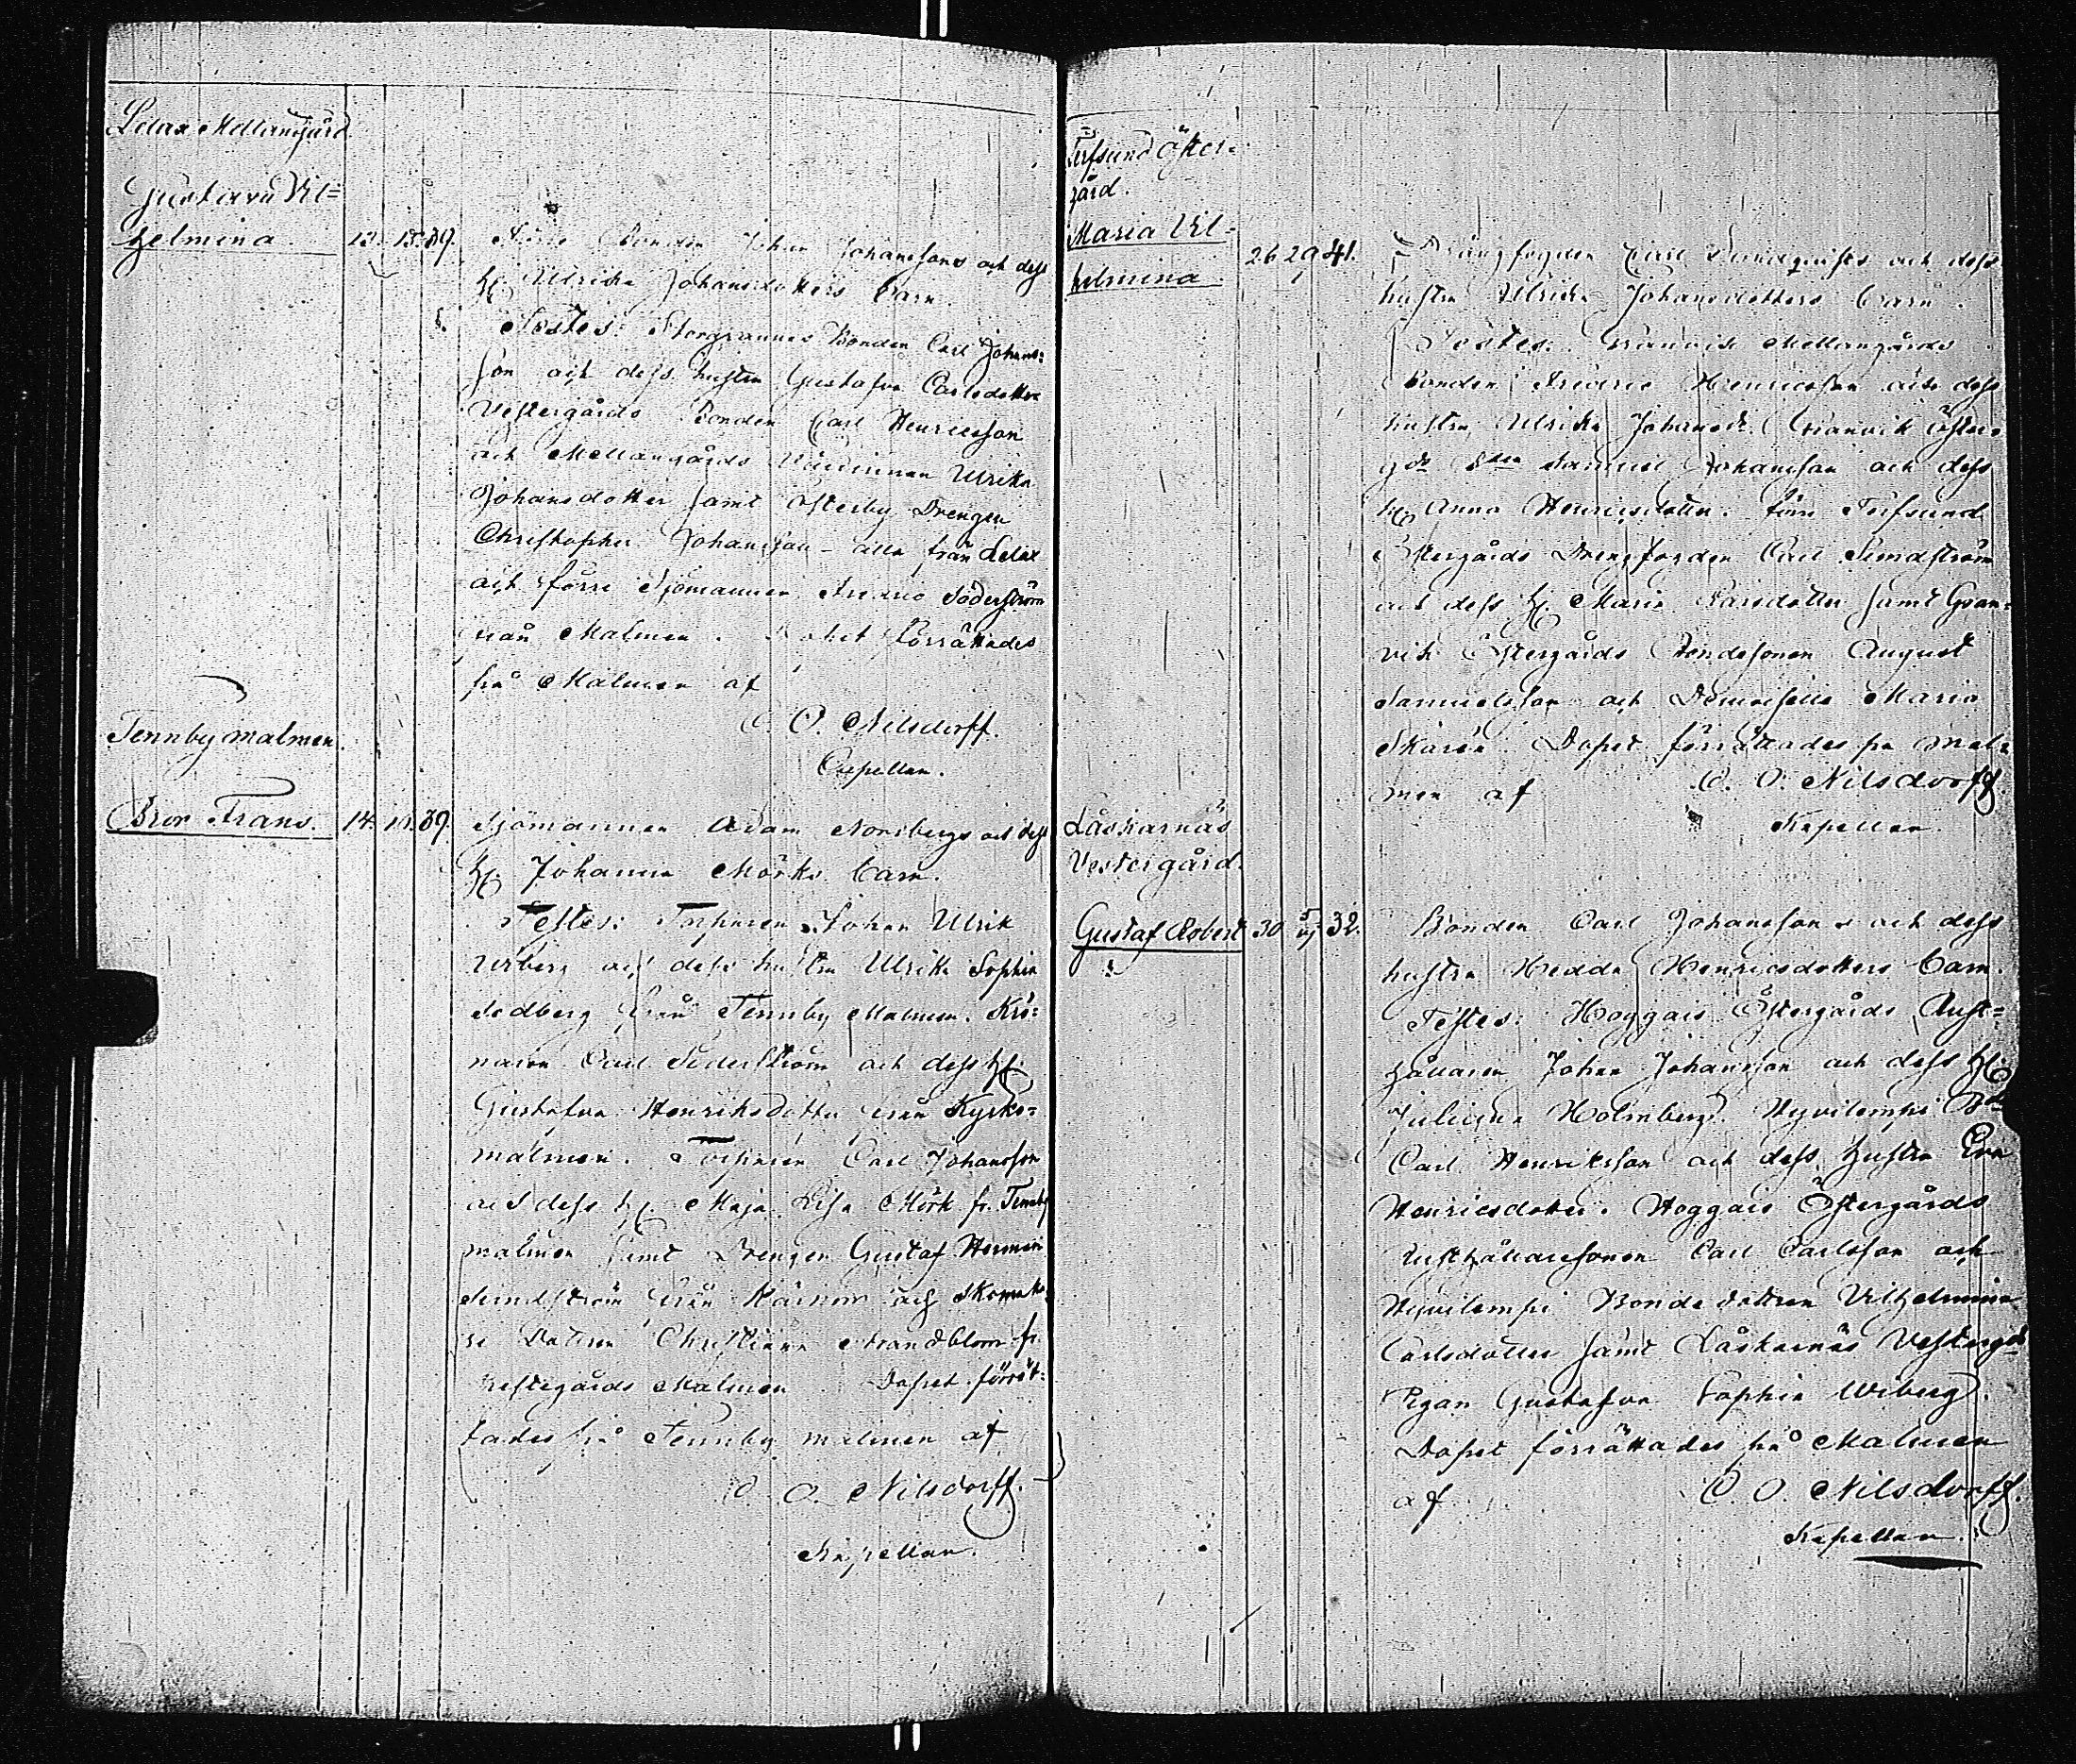 Lelax Mellangård
Gustava Vil=
helmina 12. 15. 39. Förre Bonden Johan Johanssons och dess
H. Ulrika Johansdotters Barn.
Testes: Storgrannas Bonden Carl Johans=
son och dess hustru Gustafva Carlsdotter
Vestergårds Bonden Carl Henricsson
och Mellangårds Värdinnan Ulrika
Johansdotter samt Österby Drengen
Christopher Johansson - alla från Lelax
och förre Sjömannen Fredric Söderström
från Malmen. Dopet förrättades
på Malmen af
C. O. Nilsdorff.
Capellan.
Tennby malmen.
Bror Frans. 14. 39. Sjömannen Adam Norrbergs och dess
H. Johanna Mörks Barn.
Testes: Torparen Johan Ulrik
och dess hustru Ulrika Sophia
Sedberg från Tennby Malmen. Krö=
naren Carl Söderström och dess H.
Gustafva Henriksdotter från Kyrko=
malmen. Torparen Carl Johansson
och dess H. Maja Lisa Mörk fr. Tennby
malmen samt Drengen Gustaf Herman
Sundström från och Skomaka=
re Dottren Christiana Strandblom fr.
Prestegårds Malmen. Dopet förrät=
tades på Tennby malmen af
C. O. Nilsdorff.
Kapellan.
Terfsund Öster=
gård.
Maria Vil=
helmina. 26 29 41. Drängfogden Carl Lindqvists och dess
hustru Ulrika Johansdotters Barn.
Testes: Granvik Mellangårds
Bonden Fredric Henricsson och dess
hustru Ulrika Johansdr. Granvik Öster=
gds Samuel Johansson och dess
H. Anna Henricsdotter. förre Terfsund
Östergårds Drengfogden Carl Sundström
och dess H. Maria Larsdotter samt Gran=
vik Östergårds Bondesonen August
Samuelsson och Demoiselle Maria
Skarén. Dopet förrättades på Mal=
men af C. O. Nilsdorff.
Kapellan.
Låskarnäs
Vestergård.
Gustaf Robert 30 32. Bonden Carl Johanssons och dess
hustru Hedda Henricsdotters Barn.
Testes: Hoggais Östergårds Rust=
hållaren Johan Johansson och dess H.
Juliana Holmberg. Hyvilempi
Carl Henriksson och dess hustru Eva
Henricsdotter. Hoggais Östergårds
Rusthållaresonen Carl Carlsson och
Hyvilempi Bonde dottren Vilhelmina
Carlsdotter samt Låskarnäs Vestergds
Pigan Gustafva Sophia Wiberg.
Dopet förrättades på Malmen
af C. O. Nilsdorff.
Kapellan.